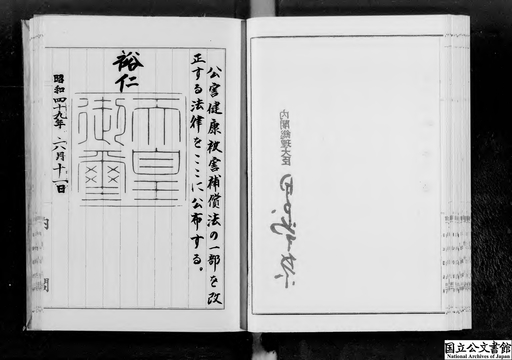 公害健康被害補償法の一部を改
正する法律をここに公布する。
裕仁
天皇
御璽
昭和四十九年六月十一日
内閣
内閣総理大臣
国立公文書館
National Archives of Japan